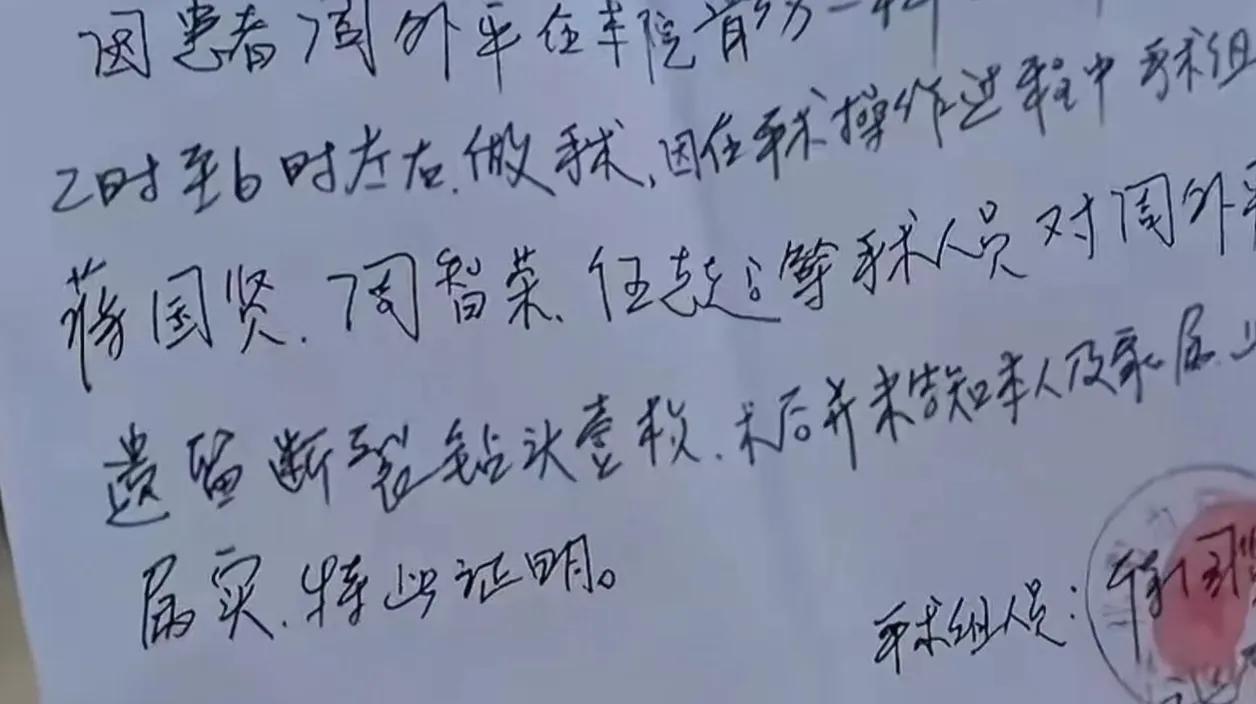 因患者周外平在本院骨外一科
2时至6时左右.做手术,因在手术操作过程中手术组
蒋国贤.周智荣.任超等手术人员对周外平
遗留断裂钻头壹枚.术后并未告知本人及家属.以
属实.特此证明。
手术组人员:蒋国贤